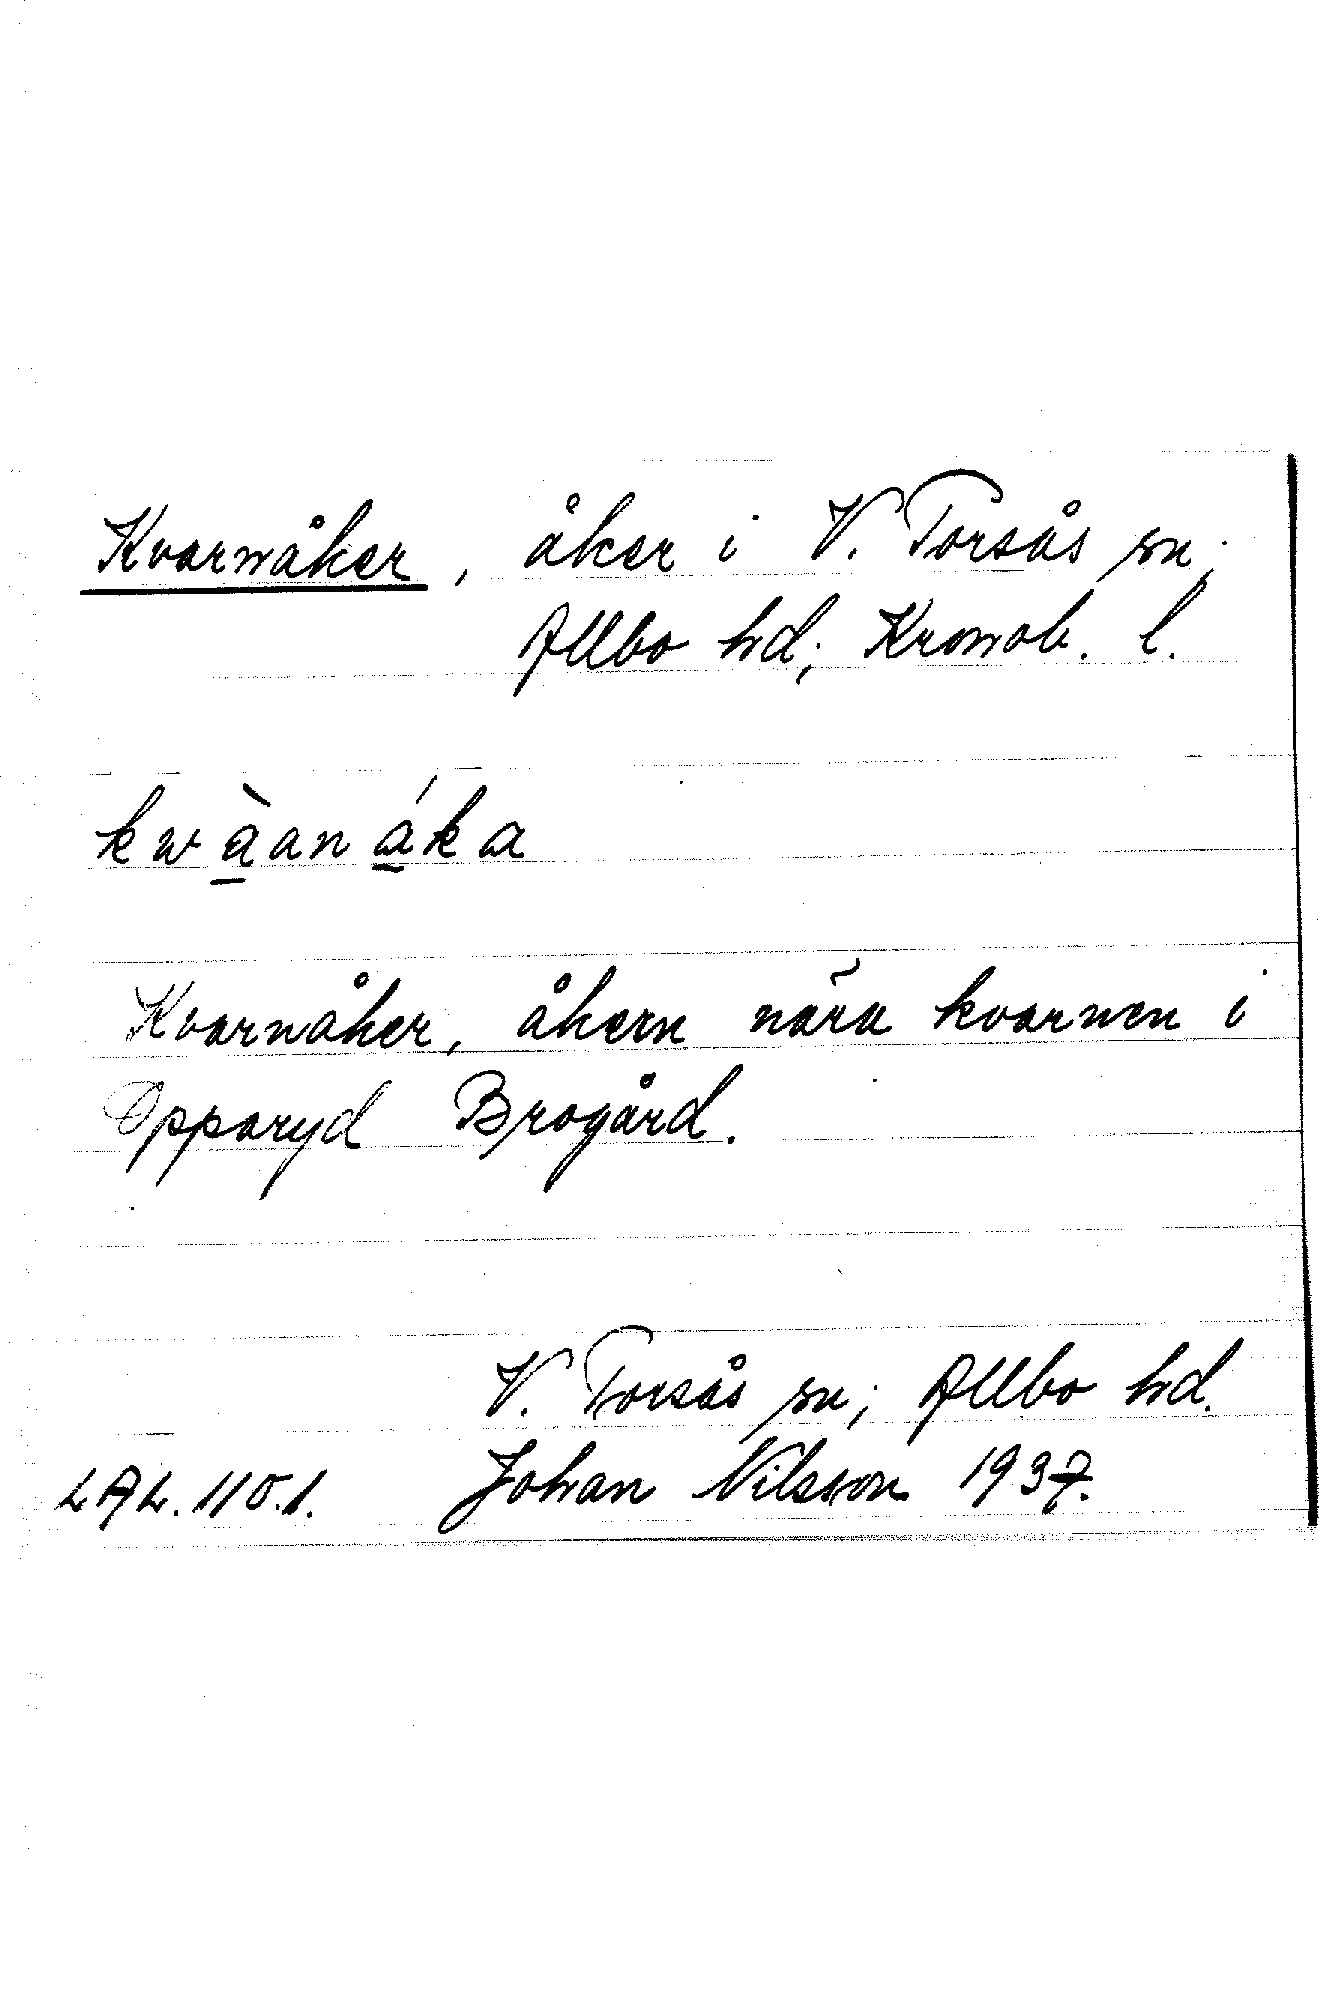 Kvarnåker, åker i V. Torsås sn;
Allbo hd; Kronob. l.
kwà̲aná̲ka
Kvarnåker, åkern nära kvarnen i
Opparyd Brogård.
V. Torsås sn; Allbo hd.
LAL. 110.1. Johan Nilsson 1937.